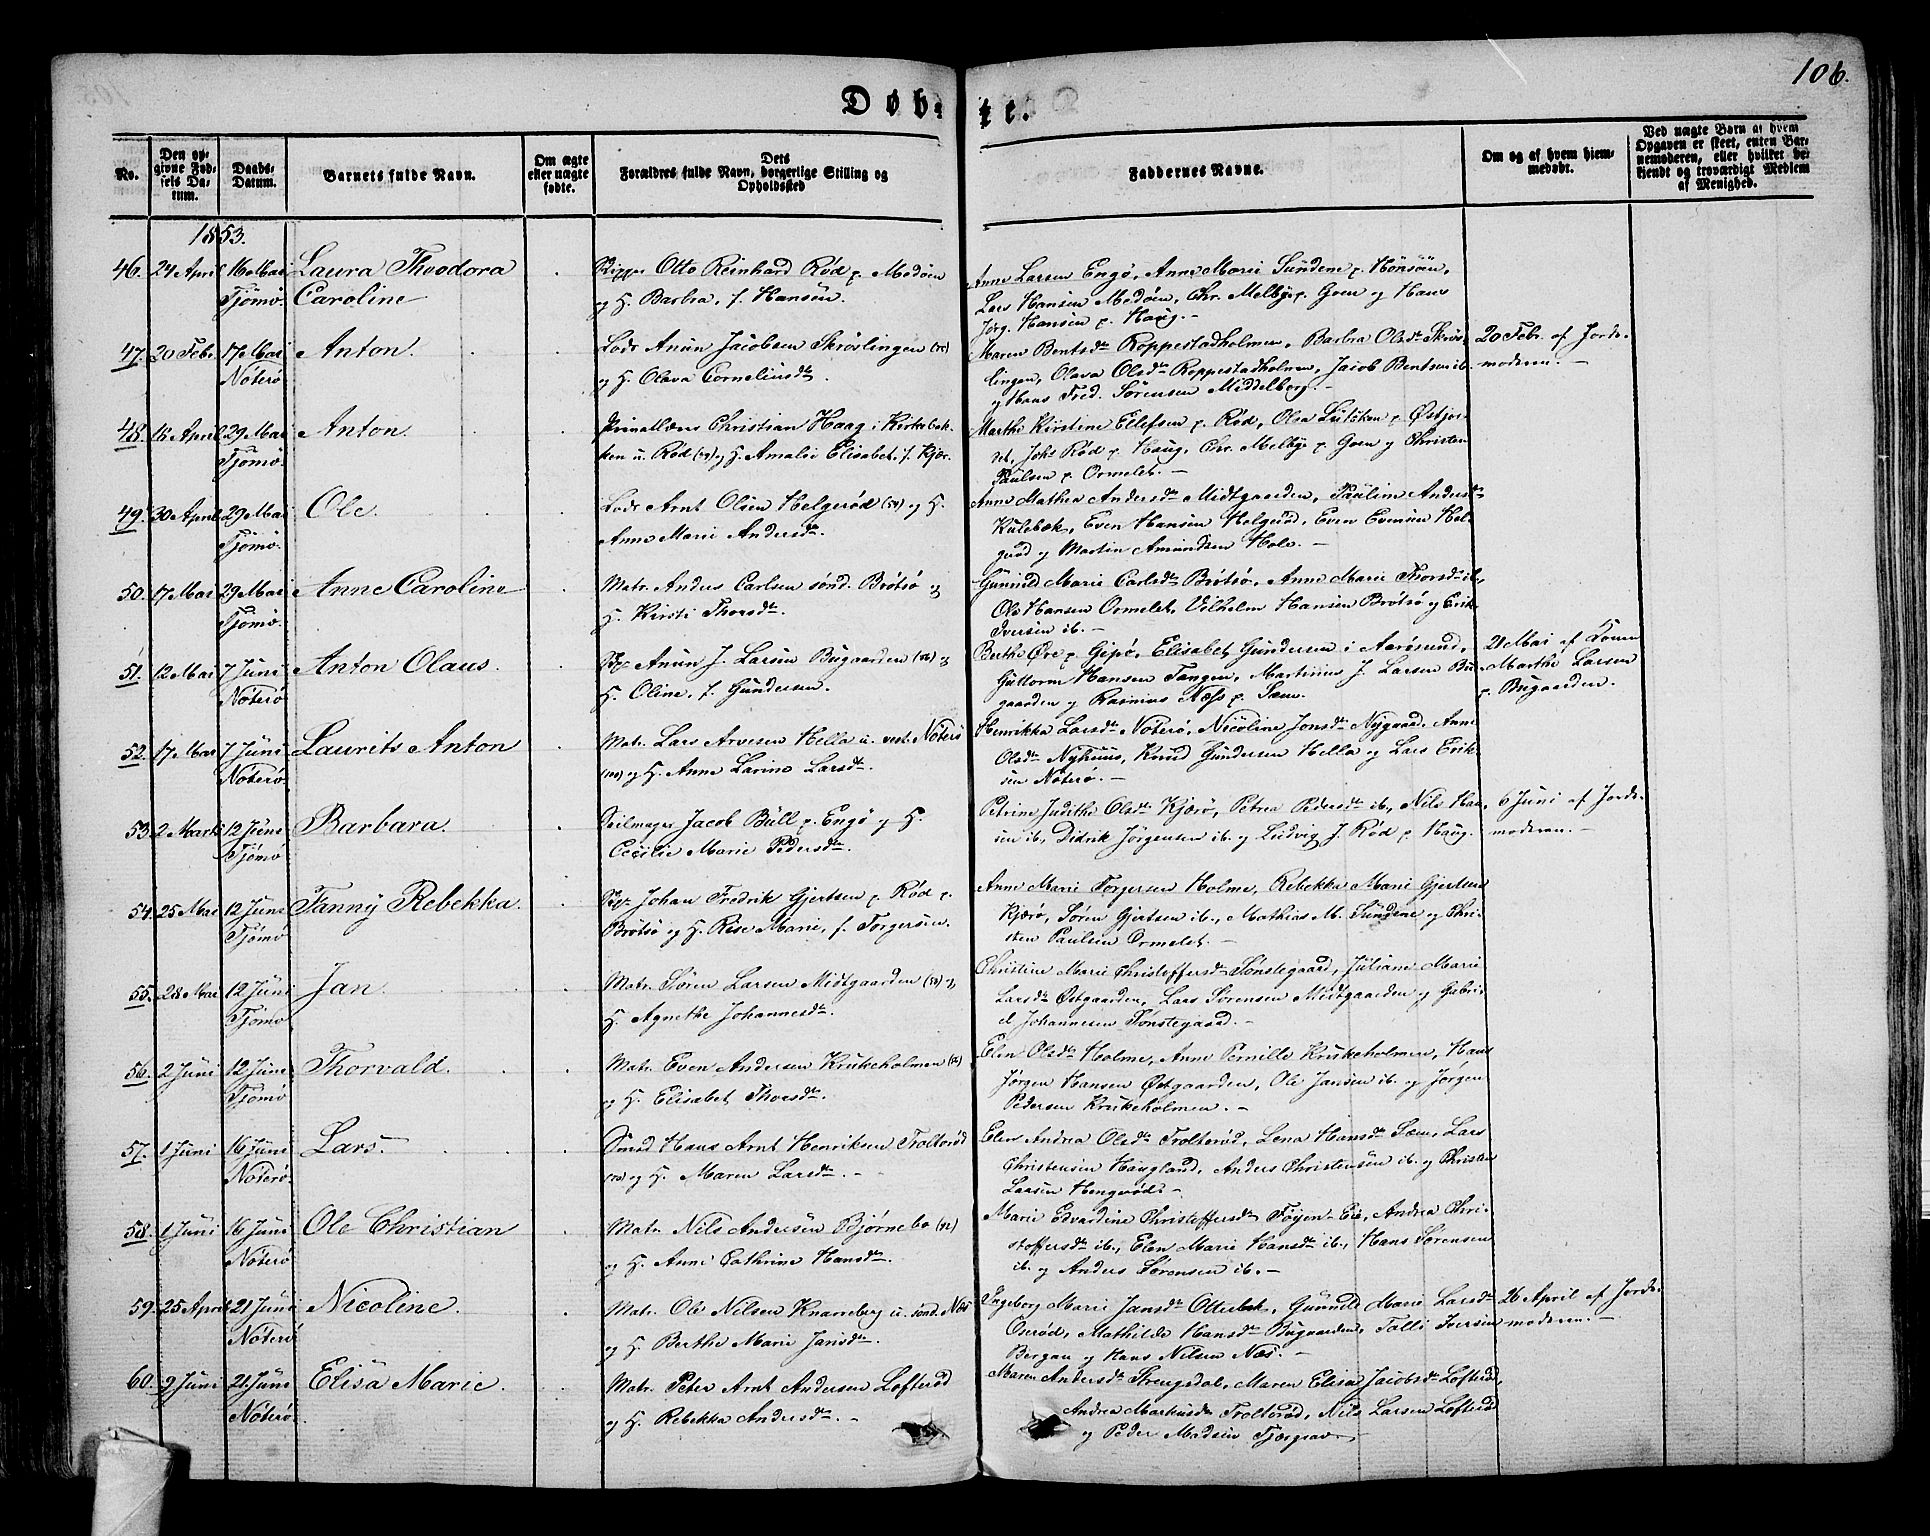 106.
Døbte.
No.
Den opgivne Fødsels Datum.
Daabs-Datum.
Barnets fulde Navn.
Om ægte eller uægte fødte.
Dets Forældres fulde Navn, borgerlige Stilling og Opholdssted
Faddernes Navne.
Om og af hvem hjemmedøbt.
Ved uægte Børn af hvem Opgaven er skeet, enten Barnemoderen, eller hvilket bekjendt og troværdigt Medlem af Menighed.
1853.
46. 24 April 16 Mai Tjömö. Laura Theodora Caroline
Skipper Otto Reinhard Röd p. Medöen
og H. Barbra, f. Hansen.
Anne Larsen Engö, Anne Marie Sundene p. Hönsöen,
Lars Hansen Medöen, Chr. Melbye p. Goen og Hans
Jörg. Hansen p. Haug.
47. 20 Febr. 17 Mai Nöterö Anton.
Lods Anun Jacobsen Skröslingen
og H. Olava Corneliusdtr.
Maren Bentsdtr Roppestadholmen, Barbra Olsdtr Skrös-
lingen, Olava Olsdtr Roppestadholmen, Jacob Bentsen ib.
og Hans Fred. Sörensen Middelborg.
20 Febr. af Jorde-
moderen.
48. 16 April 29 Mai Tjömö. Anton.
Christian Haag i Kirkebak-
ken u. Röd og H. Amalie Elisabet, f. Kjær.
Marthe Kirstine Ellefsen p. Röd, Olea Lütsken p. Östjor-
det, Johs Röd p. Haug, Chr. Melbye p. Goen og Christen
Paulsen p. Ormelet.
49. 30 April 29 Mai Tjömö. Ole.
Lods Arnt Olsen Helgeröd og H.
Anne Marie Andersdtr.
Anne Mathea Andersdtr Midtgaarden, Pauline Andersdtr
Kulebæk, Even Hansen Helgeröd, Even Evensen Hel-
geröd og Martin Amundsen Hole.
50. 17 Mai 29 Mai Tjömö. Anne Caroline
Matr. Anders Carlsen sönd. Brötsö og
H. Kirsti Thorsdtr.
Gunnild Marie Carlsdtr Brötsö, Anne Marie Thorsdtr ib.,
Ole Hansen Ormelet, Vilhelm Hansen Brötsö og Erik
Iversen ib.
51. 12 Mai 7 Juni Nöterö Anton Olaus.
Anun J. Larsen Bugaarden og
H. Oline, f. Gundersen.
Berthe Öre p. Gipö, Elisabet Gundersen i Aarösund,
Guttorm Hansen Tangen, Martinius J. Larsen Bu-
gaarden og Rasmus Næss p. Sem.
21 Mai af Konen
Marthe Larsen
p. Bugaarden.
52. 17 Mai 7 Juni Nöterö. Laurits Anton
Matr. Lars Arvesen Hella u. vest. Nöterö
og H. Anne Larine Larsdtr.
Henrikka Larsdtr Nöterö, Nicoline Jonsdtr Nygaard, Anne
Olsdtr Nyhuus, Knud Gundersen Hella og Lars Erik-
sen Nöterö.
53. 2 Marts 12 Juni Tjömö Barbara.
Seilmager Jacob Bull p. Engö og H.
Cecilie Marie Pedersdtr.
Petrine Judithe Olsdtr Kjærö, Petrea Pedersdtr ib., Nils Han-
sen ib., Didrik Jörgensen ib. og Ludvig J. Röd p. Haug.
6 Juni af Jorde-
moderen.
54. 25 Mai 12 Juni Tjömö. Fanny Rebekka.
Johan Fredrik Gjertsen p. Röd p.
Brötsö og H. Rise Marie, f. Torgersen.
Anne Marie Torgersen Holme, Rebekka Marie Gjertsen
Kjærö, Sören Gjertsen ib., Mathias M. Sundene og Chri-
sten Paulsen Ormelet.
55. 28 Mai 12 Juni Tjömö Jan.
Matr. Sören Larsen Midtgaarden og
H. Agnethe Johannesdtr.
Christine Marie Christoffersdtr Sönstegaard, Juliane Marie
Larsdtr Östgaarden, Lars Sörensen Midtgaarden og Gabri-
el Johannesen Sönstegaard.
56. 2 Juni 12 Juni Tjömö Thorvald.
Matr. Even Andersen Krukeholmen
og H. Elisabet Thorsdtr.
Elen Olsdtr Holme, Anne Pernille Krukeholmen, Hans
Jörgen Hansen Östgaarden, Ole Jansen ib. og Jörgen
Pedersen Krukeholmen.
57. 1 Juni 16 Juni Nöterö. Lars.
Smed Hans Arnt Henriksen Trolteröd
og H. Maren Larsdtr.
Elen Andrea Olsdtr Trolteröd, Lena Hansdtr Sem, Lars
Christensen Haugland, Anders Christensen ib. og Christen
Larsen Hengeröd.
58. 1 Juni 16 Juni Nöterö Ole Christian
Matr. Nils Andersen Björnebo
og H. Anne Cathrine Hansdtr.
Marie Edvardine Christoffersdtr Föyen Eie, Andrea Chri-
stoffersdtr ib., Elen Marie Hansdtr ib., Hans Sörensen
ib. og Anders Sörensen ib.
59. 25 April 21 Juni Nöterö Nicoline.
Matr. Ole Nilsen Knarreberg u. sönd. Næs
og H. Berthe Marie Jansdtr.
Ingeborg Marie Jansdtr Otterbek, Gunnild Marie Larsdtr
Oseröd, Mathilde Hansdtr Bugaarden, Tolli Iversen
Bergan og Hans Nilsen Næs.
26 April af Jorde-
moderen.
60. 9 Juni 21 Juni Nöterö. Elisa Marie.
Matr. Peter Arnt Andersen Lofteröd
og H. Rebekka Andersdtr.
Maren Andersdtr Strengsdal, Maren Elisa Jacobsdtr Lofteröd,
Andrea Markusdtr Trolteröd, Nils Larsen Lofteröd
og Peder Madsen Tjærgrav.